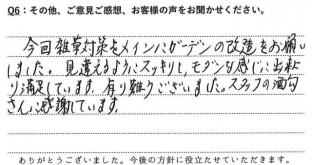 Q6：その他、ご意見ご感想、お客様の声をお聞かせください。
今回雑草対策をメインにガーデンの改造をお願い
しました。見違えるようにスッキリし、モダンな感じに出来上
り満足しています。有り難うございました。スタッフの
さんに感謝しています。
ありがとうございました。今後の方針に役立たせていただきます。